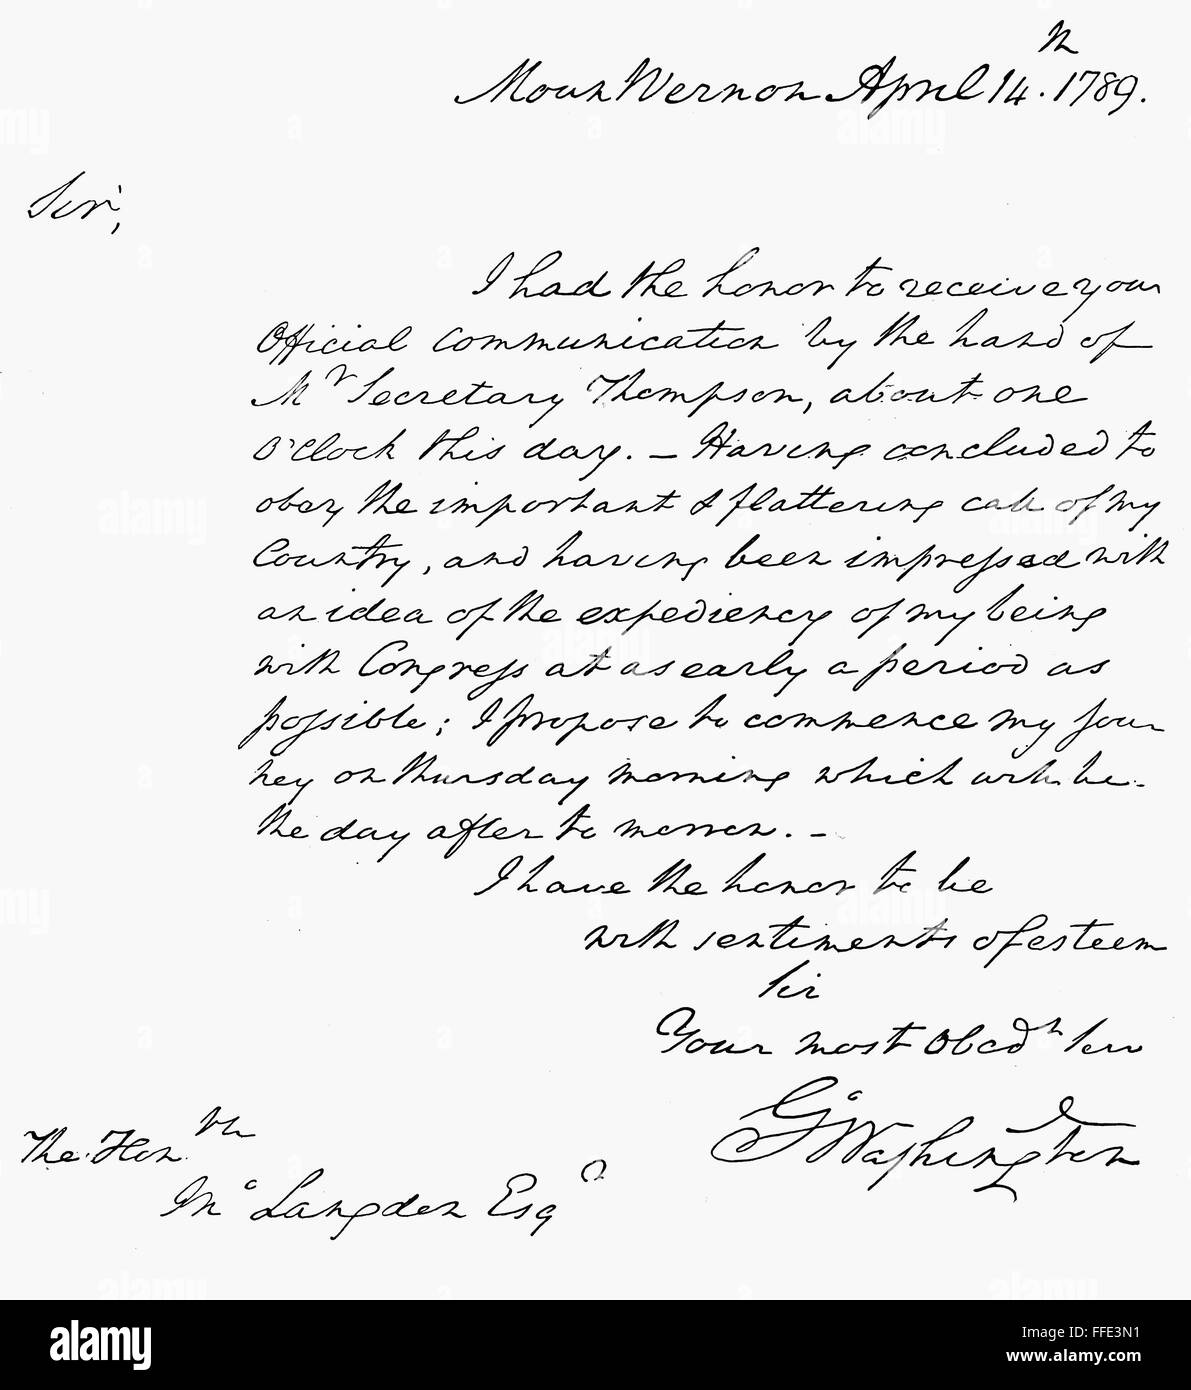 Mount Vernon April 14.th 1789.
Sir,
I had the honor to receive your
Official Communication by the hand of
Mr Secretary Thompson, about one
O'Clock this day. — Having concluded to
obey the important & flattering call of my
Country, and having been impressed with
an idea of the expediency of my being
with Congress at as early a period as
possible; I propose to commence my jour
ney on thursday morning which will be
the day after to morrow. —
I have the honor to be
with sentiments of esteem
Sir
Your most Obedt Serv
Go Washington
The Honble
Jno Langdon Esqr
alamy
Image ID: FFE3N1
www.alamy.com